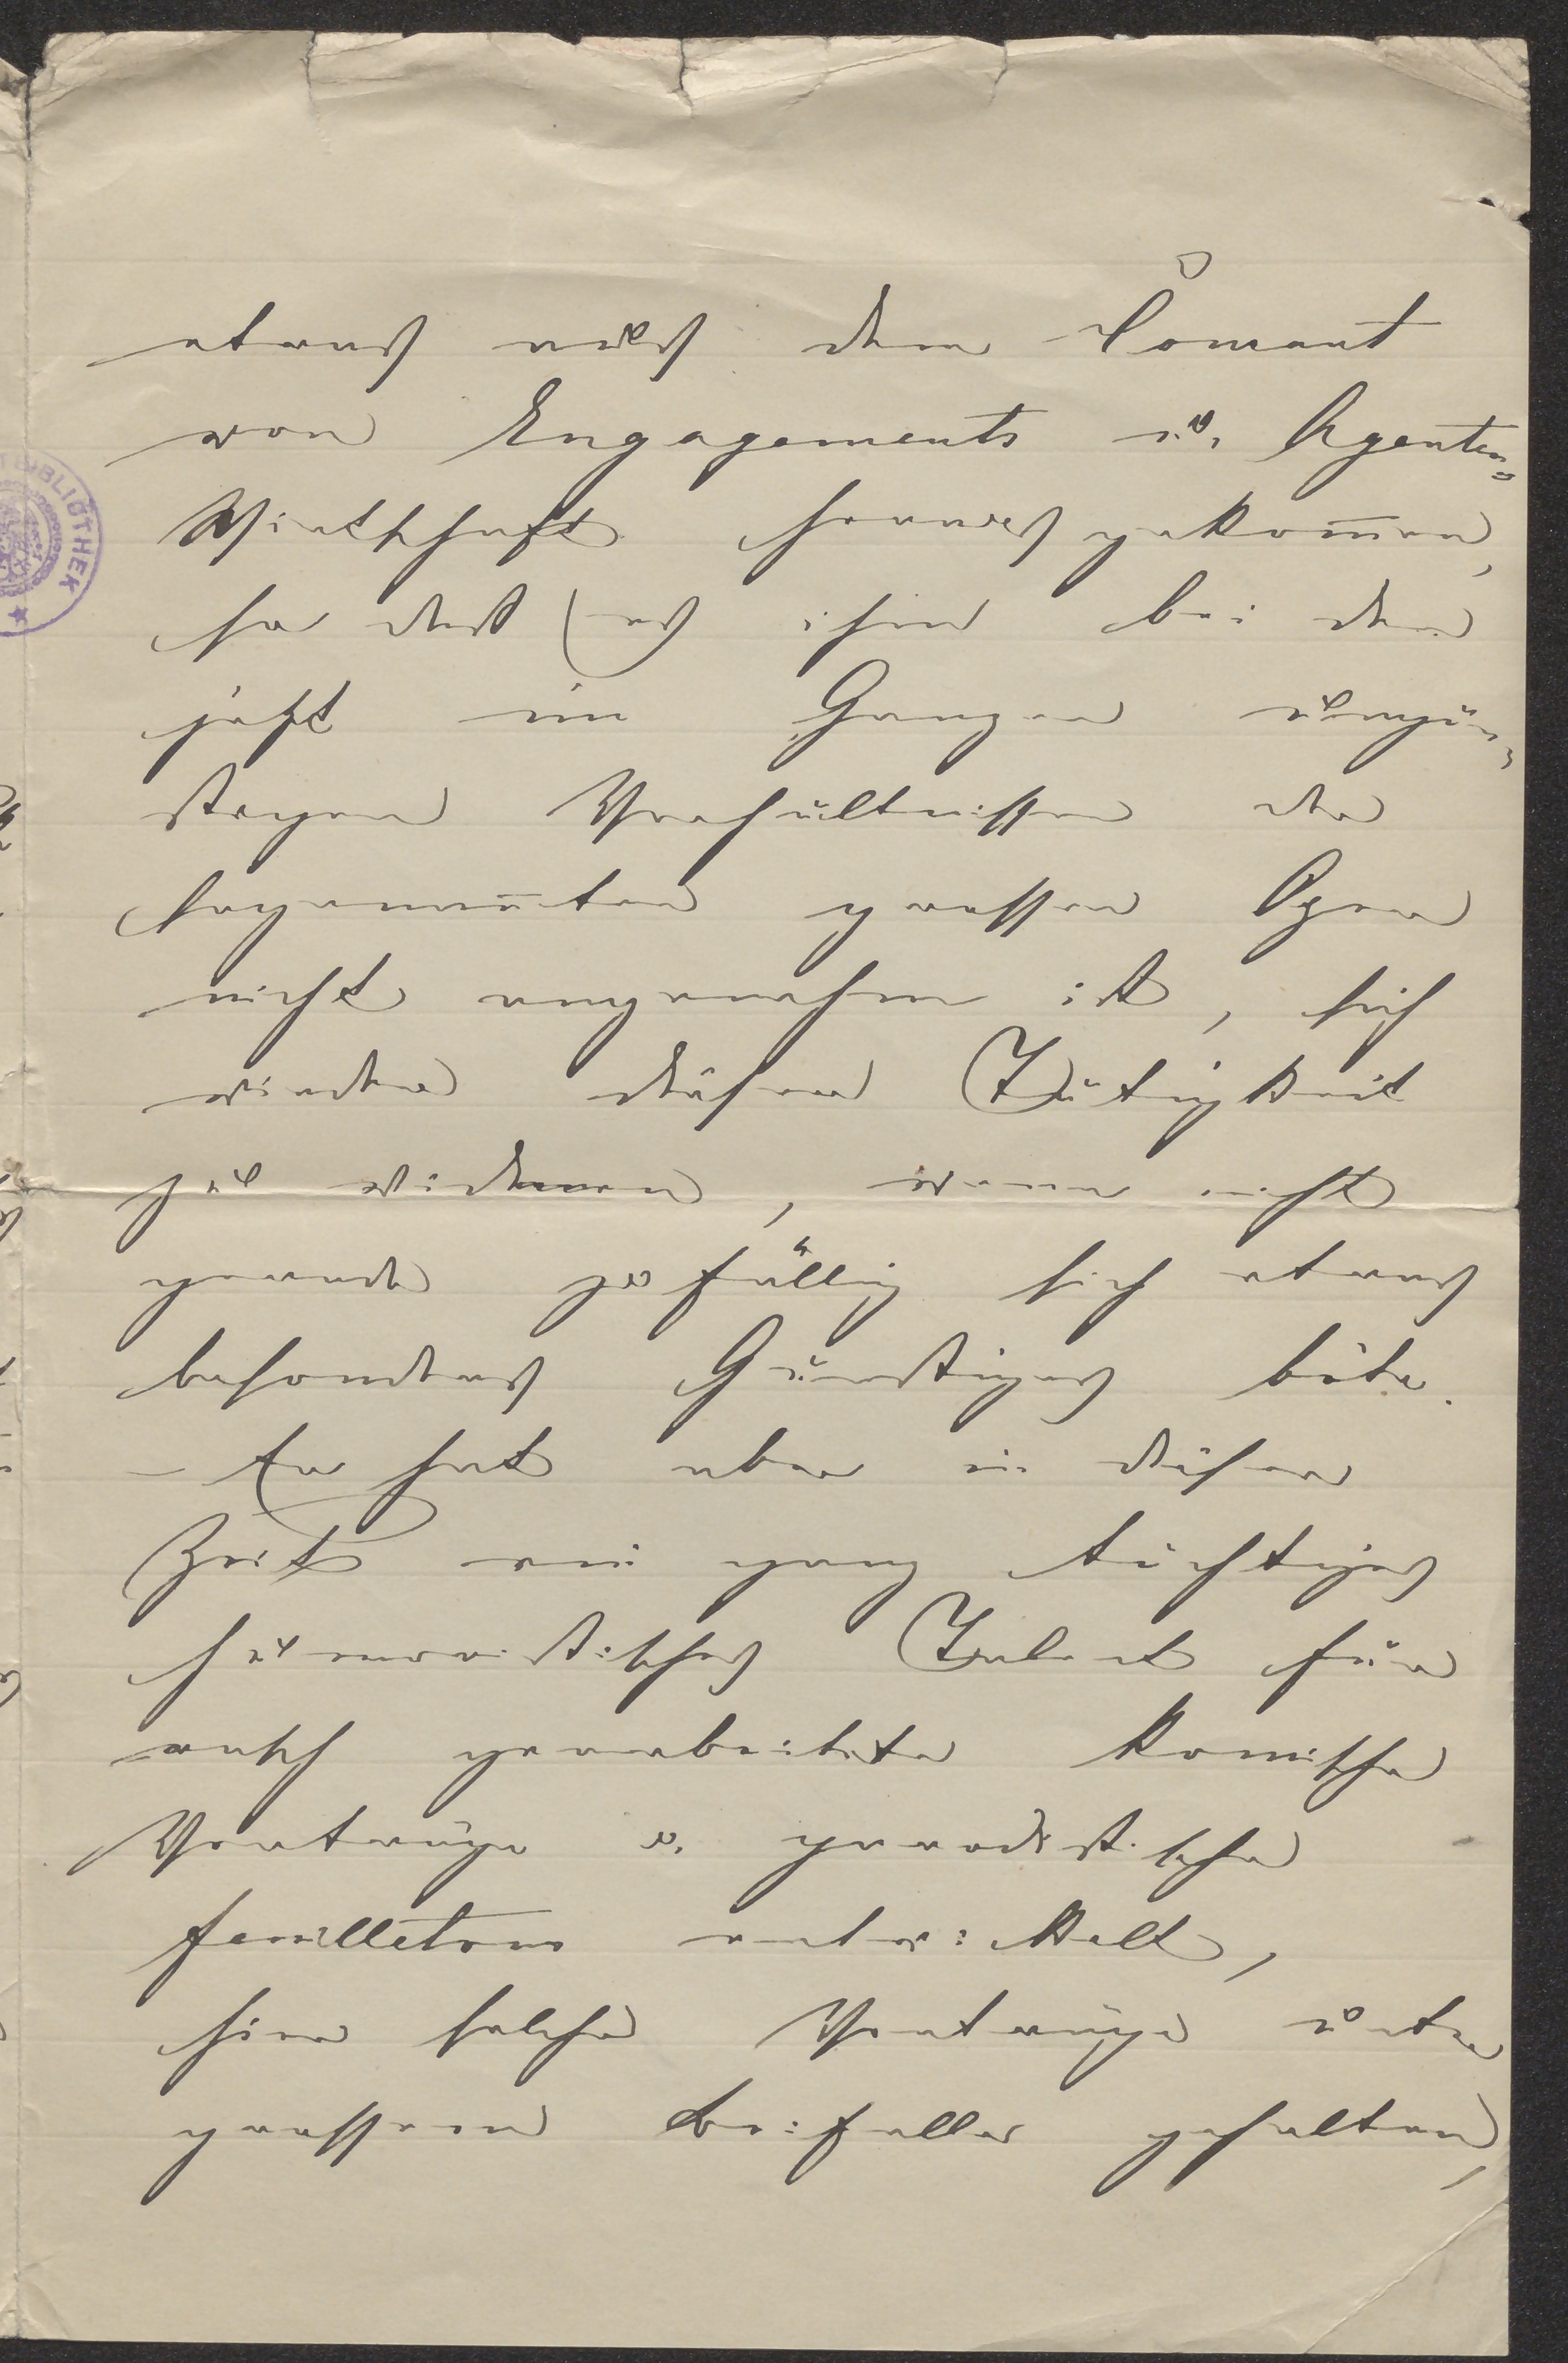 etwas aus dem Courant
von Engagements u. Agenten-
Wirthschaft herausgekommen,
so daß es ihm bei den
jetzt im Ganzen ungün-
stigen Verhältnissen der
sogenannten grossen Oper
nicht angenehm ist, sich
wieder dieser Tätigkeit
zu widmen, wenn nicht
gerade zufällig sich etwas
besonders Günstiges böte.
– Er hat aber in dieser
Zeit ein ganz tüchtiges
humoristisches Talent für
rasch gearbeitete komische
Vorträge u. parodistische
Feuilletons entwickelt,
hier solche Vorträge unter
grossem Beifalle gehalten,
BIBLIOTHEK